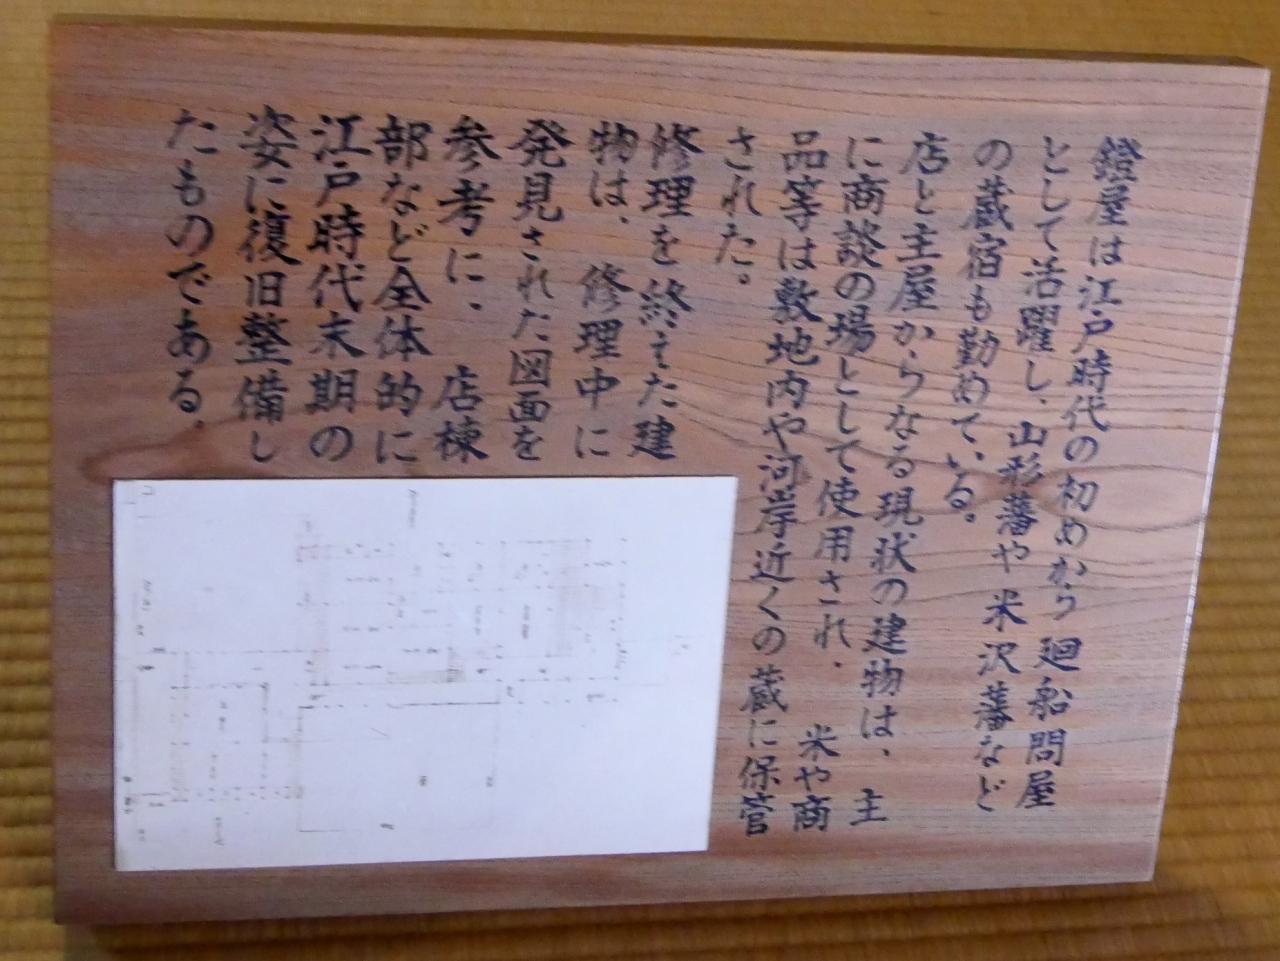 鐙屋は江戸時代の初めから廻船問屋
として活躍し、山形藩や米沢藩など
の蔵宿も勤めている。
店と主屋からなる現状の建物は、主
に商談の場として使用され、米や商
品等は敷地内や河岸近くの蔵に保管
された。
修理を終えた建
物は、修理中に
発見された図面を
参考に、店棟
部など全体的に
江戸時代末期の
姿に復旧整備し
たものである。